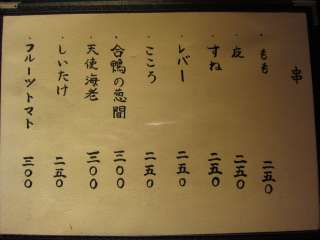 串
・もも 二五〇
・皮 二五〇
・すね 二五〇
・レバー 二五〇
・こころ 二五〇
・合鴨の葱間 三〇〇
・天使海老 三〇〇
・しいたけ 二五〇
・フルーツトマト 三〇〇